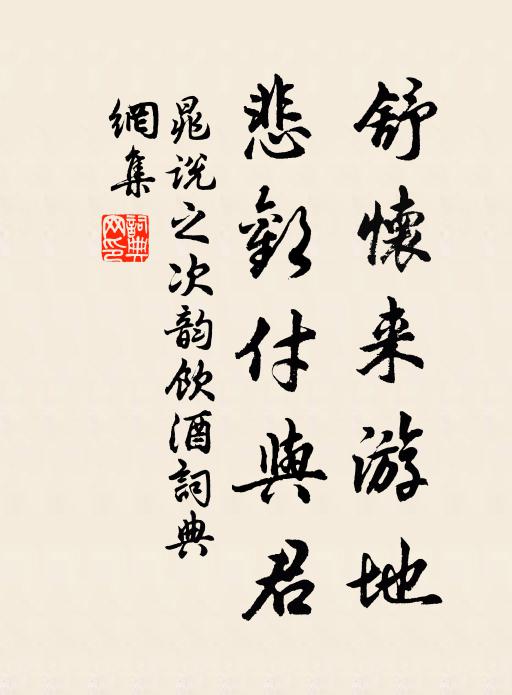 舒懷来游地
悲歡付與君
晁説之次韵飲酒詞典
網集
詞典網印